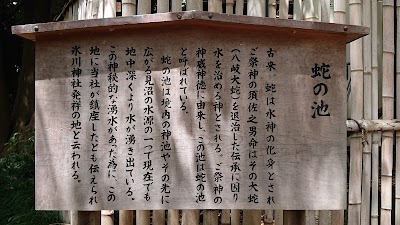 蛇の池
古来　蛇は水神の化身とされ
ご祭神の須佐之男命はその大蛇
（八岐大蛇）を退治した伝承に因り
水を治める神とされる。ご祭神の
神威神徳に由来し、この池は蛇の池
と呼ばれている。
蛇の池は境内の神池やその先に
広がる見沼の水源の一つで現在でも
地中深くより水が湧き出ている。
この神秘的な湧水があった為に、この
地に当社が鎮座したとも伝えられ
氷川神社発祥の地と云われる。